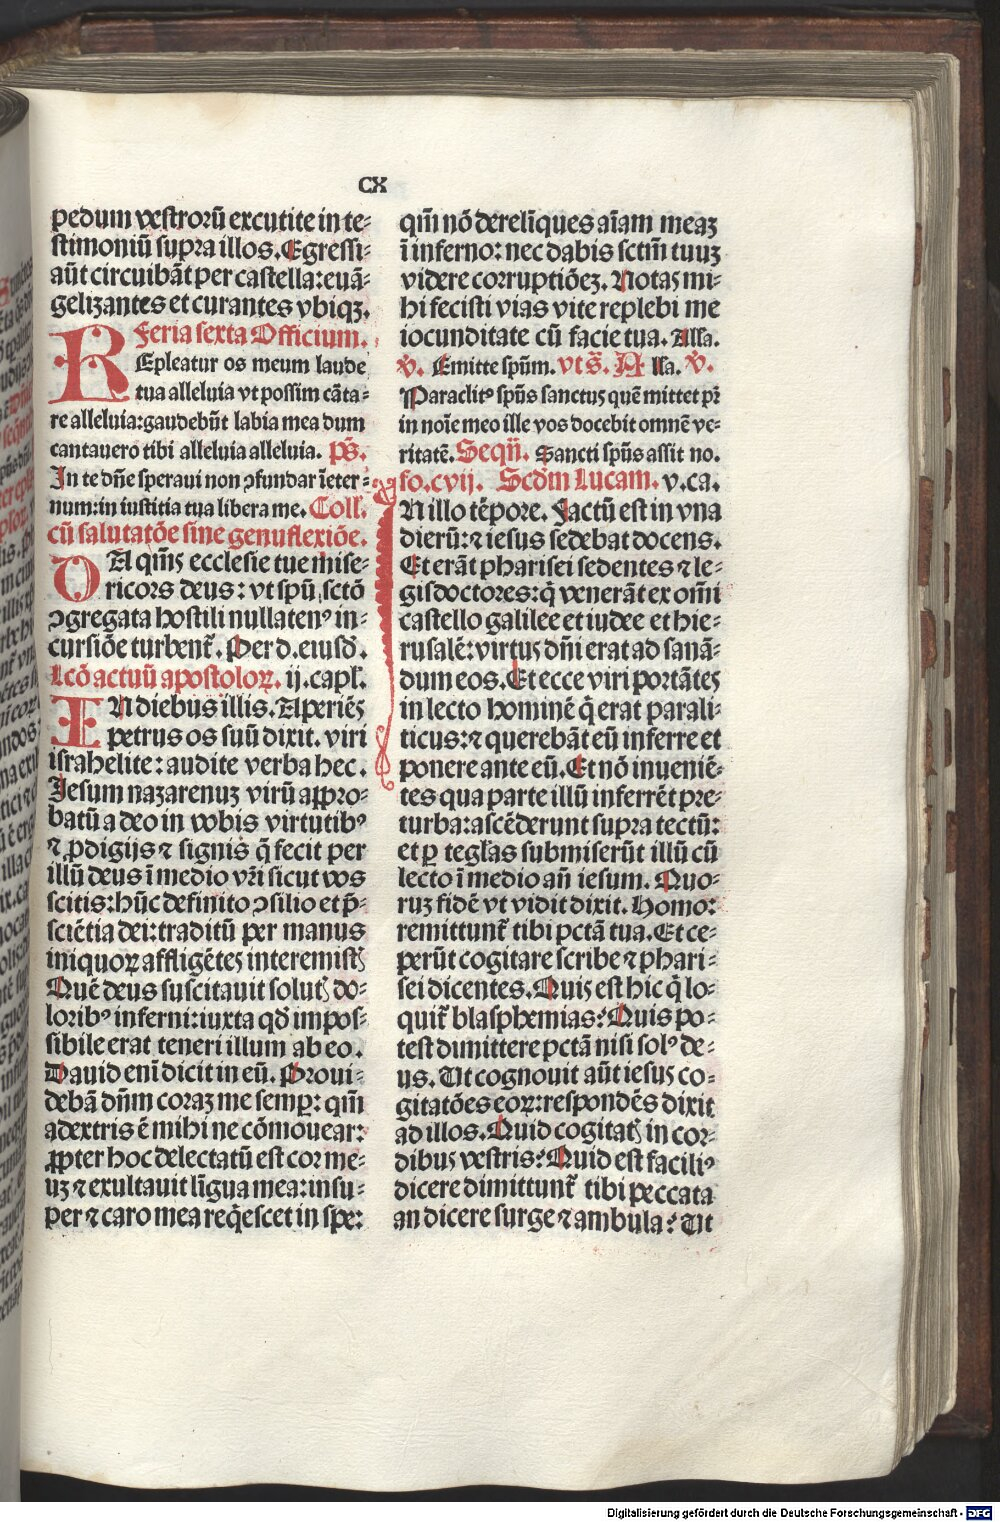 CX
pedum vestrorū excutite in te⸗
stimoniū supra illos. Egressi⸗
aūt circuibāt per castella: euā⸗
gelizantes et curantes vbiqꝫ.
Feria sexta Officium.
REpleatur os meum laude
tua alleluia vt possim cāta⸗
re alleluia: gaudebūt labia mea dum
cantauero tibi alleluia alleluia. p̄s.
In te dn̄e speraui non ꝯfundar īeter⸗
num: in iusticia tua libera me. Coll.
cū salutatōe sine genuflexiōe.
DA qm̄s ecclesie tue mise⸗
ricors deus: vt spū sctō
ꝯgregata hostili nullatenꝰ in⸗
cursiōe turbent̄. Per d. eiusd̄.
Lcō actuū apostoloꝝ. ij. capł.
IN diebus illis. Aperiēs
petrus os suū dixit. viri
israhelite: audite verba hec.
Jesum nazarenuꝫ virū aꝓpro⸗
batū a deo in vobis virtutibꝰ
⁊ ꝓdigijs ⁊ signis q̄ fecit per
illū deus ī medio vr̄i sicut vos
scitis: hūc definito ꝯsilio et p̄⸗
sciētia dei: traditū per manus
iniquoꝝ affligētes interemistꝭ
Quē deus suscitauit solutꝭ do⸗
loribꝰ inferni: iuxta qd̄ impos⸗
sibile erat teneri illum ab eo.
Dauid enī dicit in eū. Proui⸗
debā dn̄m coraꝫ me semꝑ: qm̄
a dextris ē mihi ne cōmouear:
ꝓpter hoc delectatū est cor me⸗
uꝫ ⁊ exultauit līgua mea: insu⸗
per ⁊ caro mea req̄escet in spe:
qm̄ nō derelīques aīam meaꝫ
ī inferno: nec dabis sctm̄ tuuꝫ
videre corruptiōeꝫ. Notas mi⸗
hi fecisti vias vite replebi me
iocunditate cū facie tua. Alla.
v̄. Emitte spūm. vts̄. Alla. v̄.
Paraclitꝰ spūs sanctus quē mittet pr̄
in noīe meo ille vos docebit omnē ve⸗
ritatē. Seqn̄. Sancti spūs assit no.
fo. cvij. Scd̄m Lucam. v. ca.
IN illo tēpore. Factū est in vna
dierū: ⁊ iesus sedebat docens.
Et erāt pharisei sedentes ⁊ le⸗
gisdoctores: q̄ venerāt ex om̄i
castello galilee et iudee et hie⸗
rusalē: virtus dn̄i erat ad sanā⸗
dum eos. Et ecce viri portātes
in lecto hominē q̄ erat parali⸗
ticus: ⁊ querebāt eū inferre et
ponere ante eū. Et nō inueniē⸗
tes qua parte illū inferrēt pre⸗
turba: ascēderunt supra tectū:
et ꝑ tegl̄as submiserūt illū cū
lecto ī medio an̄ iesum. Quo⸗
ruꝫ fidē vt vidit dixit. Homo:
remittunt̄ tibi pctā tua. Et ce⸗
perūt cogitare scribe ⁊ phari⸗
sei dicentes. Quis est hic q̄ lo⸗
quit̄ blasphemias? Quis po⸗
test dimittere pctā nisi solꝰ de⸗
us. Ut cognouit aūt iesus co⸗
gitatōes eoꝝ: respondēs dixit
ad illos. Quid cogitatꝭ in cor⸗
dibus vestris? Quid est faciliꝰ
dicere dimittunt̄ tibi peccata
an dicere surge ⁊ ambula? Ut
Digitalisierung gefördert durch die Deutsche Forschungsgemeinschaft - DFG